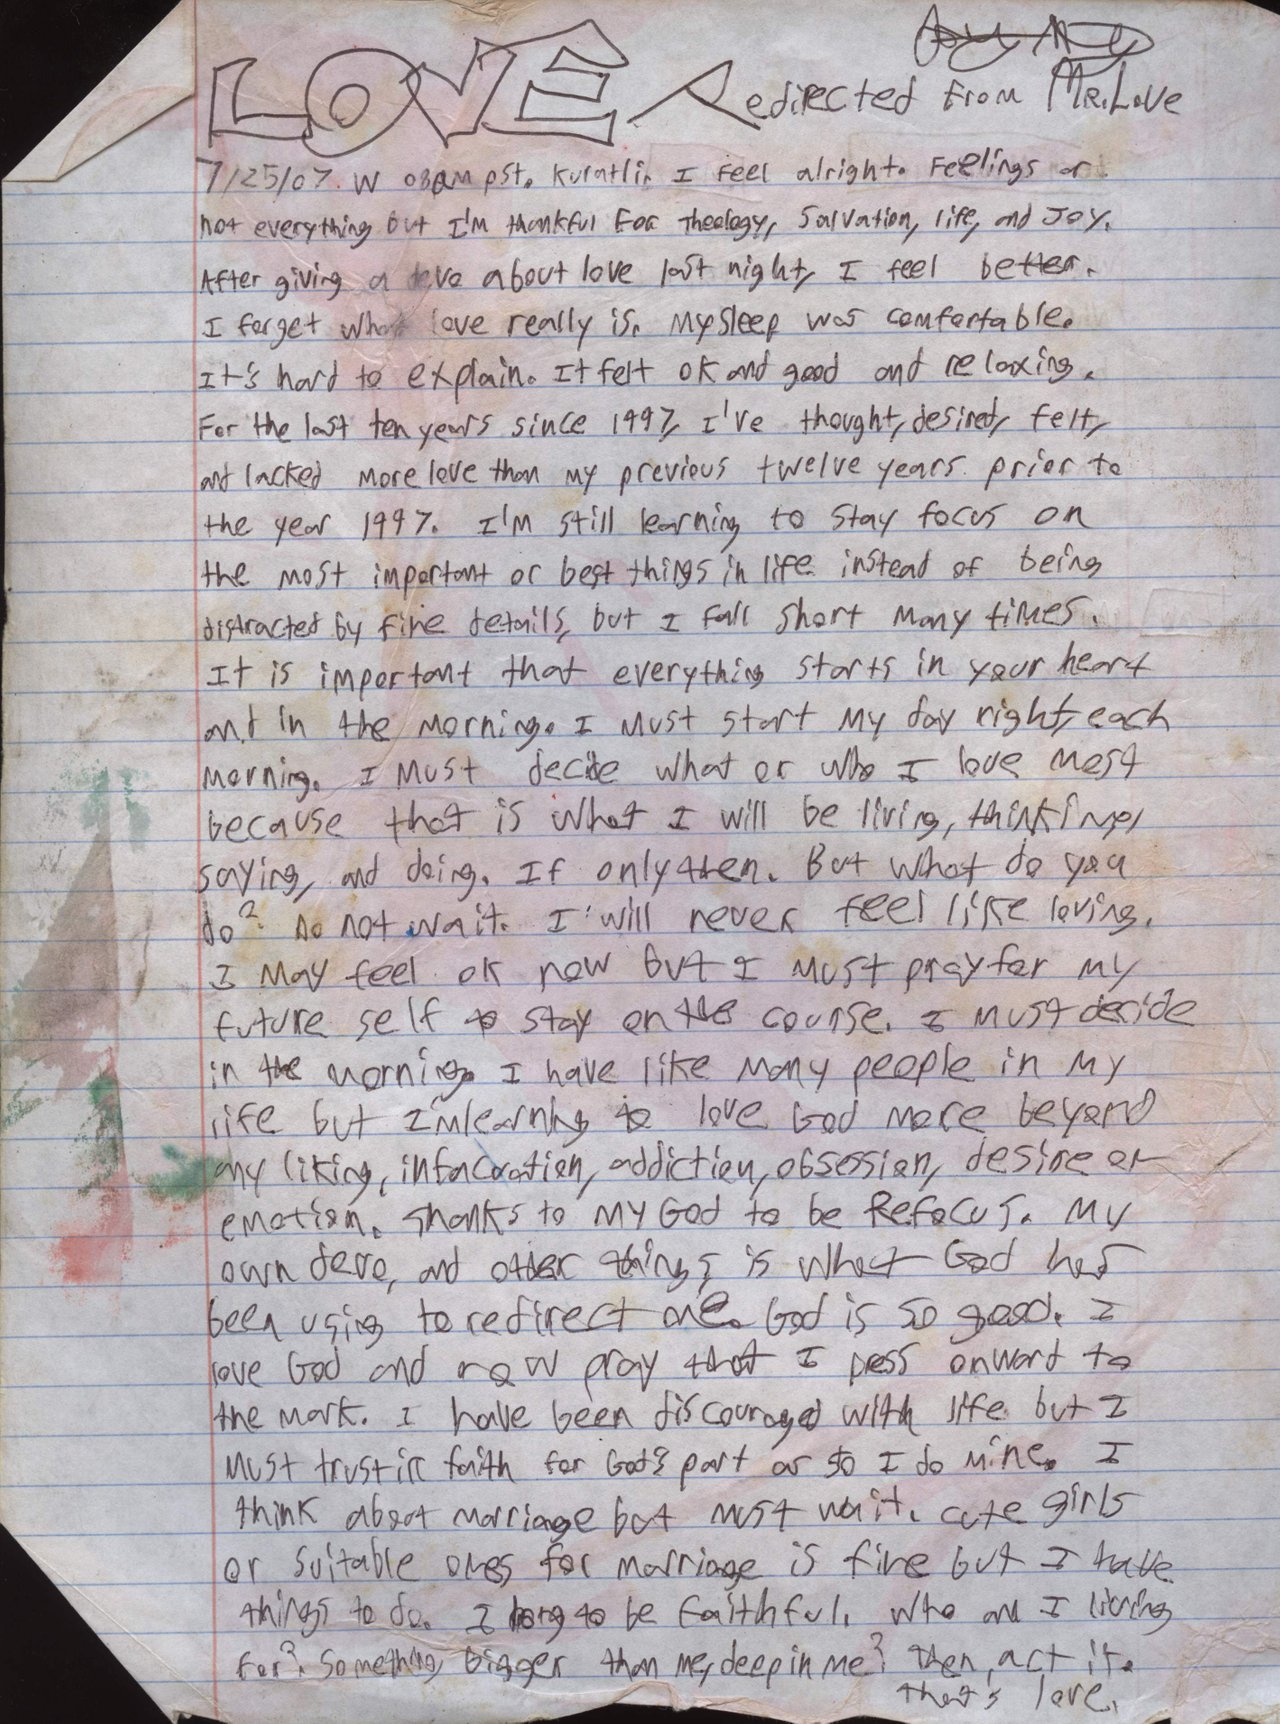 LOVE Redirected from Mr. Love
7/25/07. W 08AM pst. I feel alright. Feelings ar
not everything but I'm thankful For Theology, Salvation, life, and Joy.
After giving a devo about love last night, I feel better.
I forget what love really is. My sleep was comfortable.
It's hard to explain. It felt ok and good and relaxing.
For the last ten years since 1997, I've thought, desired, felt,
and lacked more love than my previous twelve years prior to
the year 1997. I'm still learning to stay focus on
the most important or best things in life instead of being
distracted by fine details, but I fall short many times.
It is important that everything starts in your heart
and in the morning. I must start my day right, each
morning. I must decide what or who I love most
because that is what I will be living, thinking,
saying, and doing. If only then. But what do you
do? Do not wait. I will never feel like loving.
I may feel ok now but I must pray for my
future self to stay on the course. I must decide
in the morning. I have like many people in my
life but I'm learning to love God more beyond
my liking, infacuation, addiction, obsession, desire or
emotion. Thanks to my God to be Refocus. My
own devo, and other things is what God has
been using to redirect me. God is so good. I
love God and now pray that I press onward to
the mark. I have been discouraged with life but I
must trust in faith for God's part as so I do mine. I
think about marriage but must wait. cute girls
or suitable ones for marriage is fine but I have
things to do. I long to be faithful. Who am I living
for? Something bigger than me, deep in me? Then, act it.
that's love.